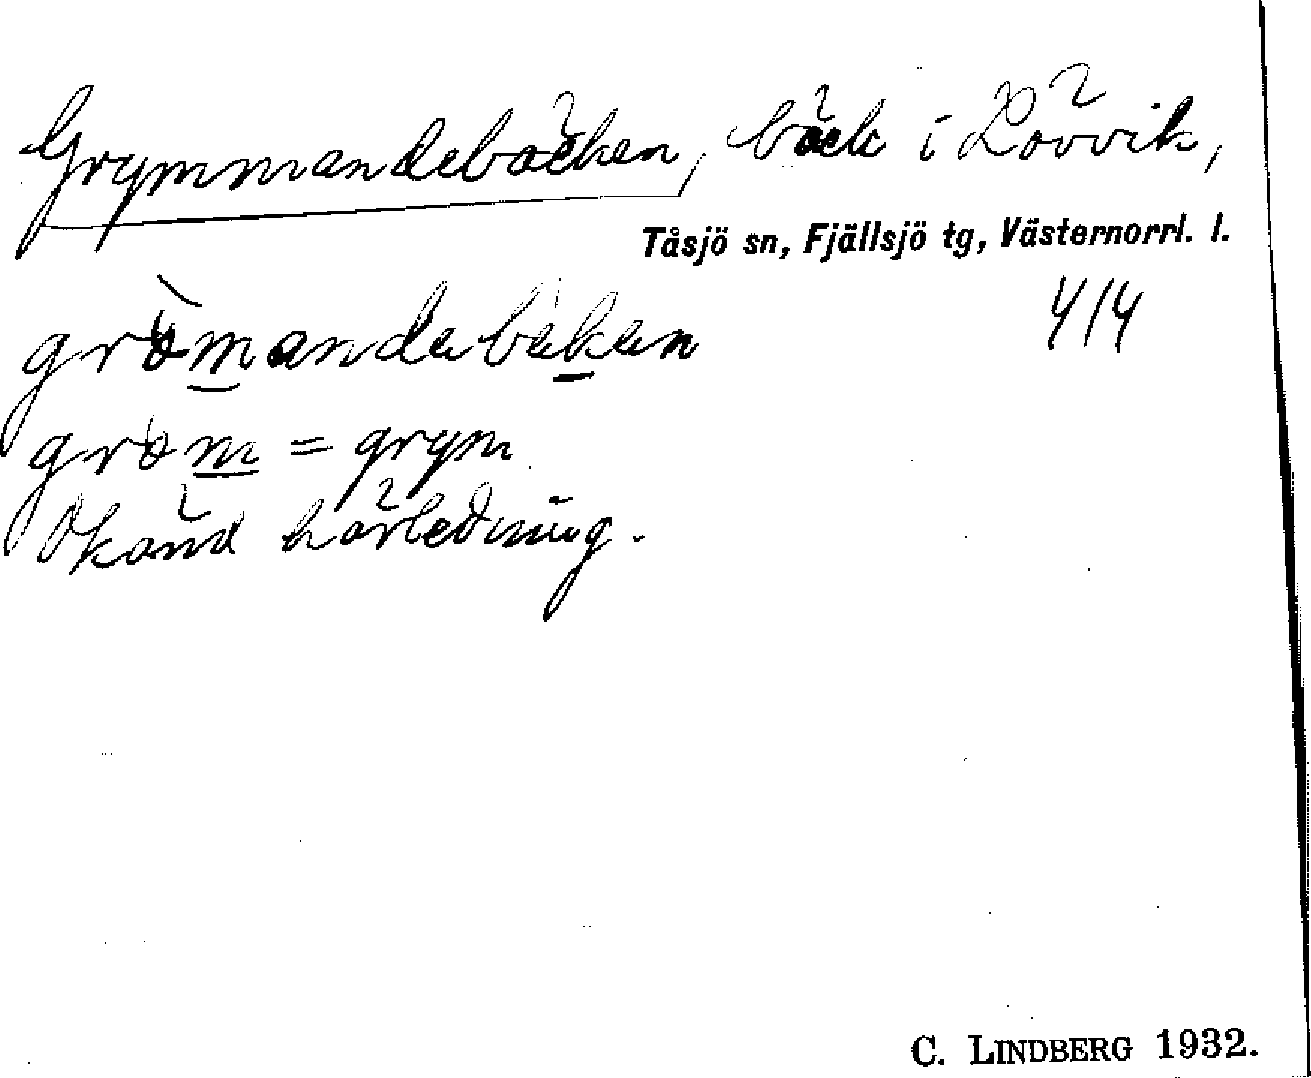 Grymmandebäcken, bäck i Lövvik,
Tåsjö sn, Fjällsjö tg, Västernorrl. l.
grömandabäken 4/4
gröm = grym
Okänd härledning.
C. LINDBERG 1932.